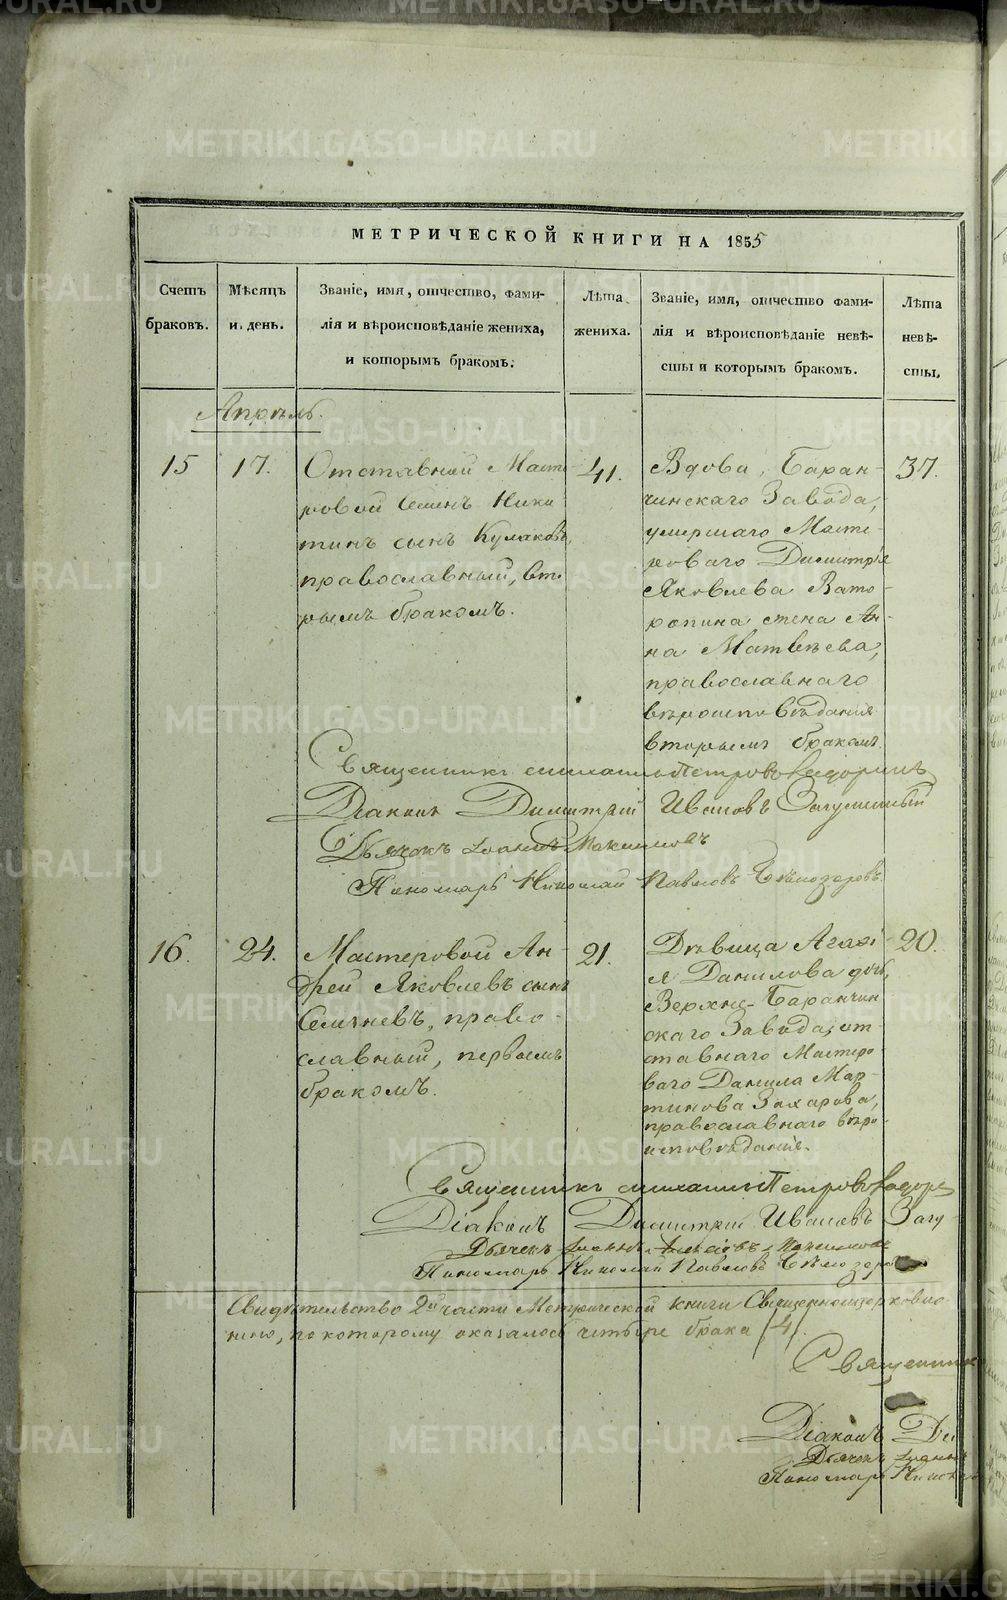 METRIKI.GASO-URAL.RU
МЕТРИЧЕСКОЙ КНИГИ НА 1855
Счетъ браковъ.
Мѣсяцъ и день.
Званіе, имя, отчество, фами-
лія и вѣроисповѣданіе жениха,
и которымъ бракомъ.
Лѣта жениха.
Званіе, имя, отчество фами-
лія и вѣроисповѣданіе невѣ-
сты и которымъ бракомъ.
Лѣта невѣ-
сты.
Апрѣль.
15
17.
Отставный Масте
ровой Семенъ Ники
тинъ сынъ Кулаковъ,
православный, вто
рымъ бракомъ.
41.
Вдова, Баран-
чинскаго Завода,
умершаго Масте-
роваго Димитрія
Яковлева Вато-
ропина жена Ан-
на Матвѣева,
православнаго
вѣроисповѣданія
вторымъ бракомъ.
37.
Священникъ Михаилъ Петровъ
Діаконъ Димитрій Ивановъ
Дьячекъ Іоаннъ Максимовъ
Пономарь Николай Павловъ Бѣлозеровъ
16.
24.
Мастеровой Ан-
дрей Яковлевъ сынъ
Семеневъ, право-
славный, первымъ
бракомъ.
21.
Дѣвица Агафі-
я Данилова дочь,
Верхне-Баранчин
скаго Завода, от
ставнаго Мастеро
ваго Данила Мар-
тинова Захарова,
православнаго вѣро
исповѣданія.
20.
Священникъ Михаилъ Петровъ
Діаконъ Димитрій Ивановъ
Дьячекъ Іоаннъ
Пономарь Николай Павловъ Бѣлозеровъ
Свидѣтельство 2й части Метрической книги Священноцерковно
по которому оказалось четыре брака /4/.
Священник
Діаконъ Ди
Дьячекъ Іоаннъ
Пономарь Никола